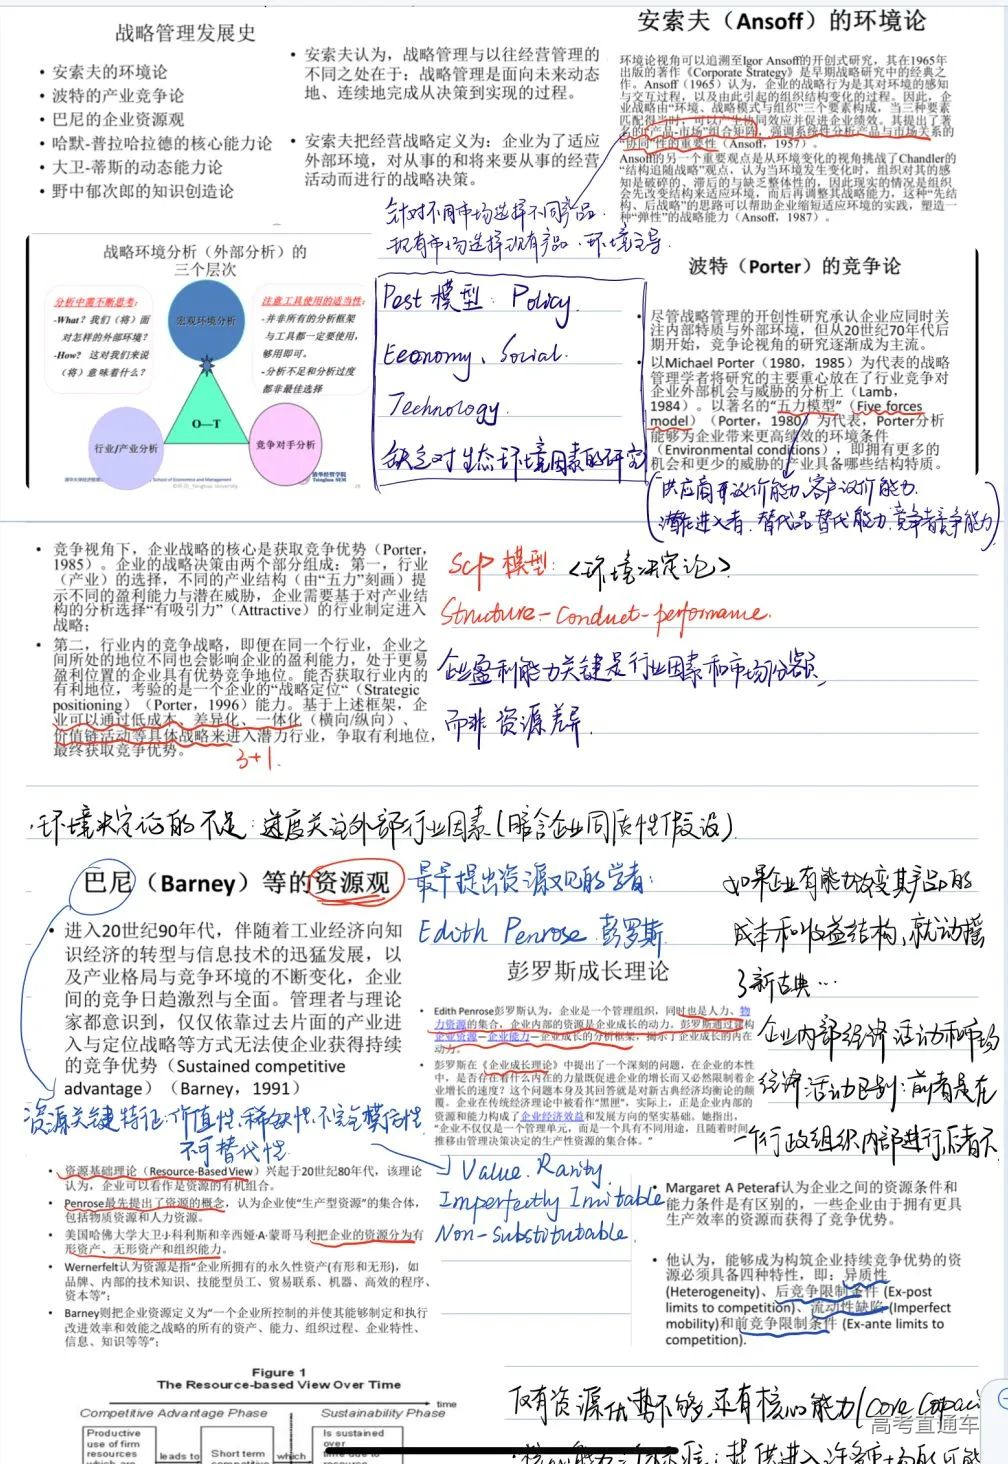 战略管理发展史
• 安索夫的环境论
• 波特的产业竞争论
• 巴尼的企业资源观
• 哈默-普拉哈拉德的核心能力论
• 大卫-蒂斯的动态能力论
• 野中郁次郎的知识创造论
• 安索夫认为，战略管理与以往经营管理的
不同之处在于：战略管理是面向未来动态
地、连续地完成从决策到实现的过程。
• 安索夫把经营战略定义为：企业为了适应
外部环境，对从事的和将来要从事的经营
活动而进行的战略决策。
安索夫（Ansoff）的环境论
环境论视角可以追溯至Igor Ansoff的开创式研究，其在1965年
出版的著作《Corporate Strategy》是早期战略研究中的经典之
作。Ansoff（1965）认为，企业的战略行为是其对环境的感知
与交互过程，以及由此引起的组织结构变化的过程。因此，企
业战略由“环境、战略模式与组织”三个要素构成，当三种要素
匹配得当时，可以产生协同效应并促进企业绩效。其提出了著
名的“产品-市场”组合矩阵，强调系统性分析产品与市场关系的
“协同”性的重要性（Ansoff，1957）。
Ansoff的另一个重要观点是从环境变化的视角挑战了Chandler的
“结构追随战略”观点，认为当环境发生变化时，组织对其的感
知是破碎的、滞后的与缺乏整体性的，因此现实的情况是组织
会先改变结构来适应环境，而后再调整其战略能力，这种“先结
构、后战略”的思路可以帮助企业缩短适应环境的实践，塑造一
种“弹性”的战略能力（Ansoff，1987）。
针对不同市场选择不同产品.
现有市场选择现有产品.环境主导.
战略环境分析（外部分析）的
三个层次
分析中需不断思考：
-What？我们（将）面
对怎样的外部环境？
-How？ 这对我们来说
（将）意味着什么？
宏观环境分析
注意工具使用的适当性：
-并非所有的分析框架
与工具都一定要使用，
够用即可。
-分析不足和分析过度
都非最佳选择
O—T
行业/产业分析
竞争对手分析
School of Economics and Management
清华经管学院
Tsinghua SEM
Pest 模型：Policy.
Economy、Social.
Technology.
缺乏对生态环境因素的研究
波特（Porter）的竞争论
• 尽管战略管理的开创性研究承认企业应同时关
注内部特质与外部环境，但从20世纪70年代后
期开始，竞争论视角的研究逐渐成为主流。
• 以Michael Porter（1980，1985）为代表的战略
管理学者将研究的主要重心放在了行业竞争对
企业外部机会与威胁的分析上（Lamb，
1984）。以著名的“五力模型”（Five forces
model）（Porter，1980）为代表，Porter分析
能够为企业带来更高绩效的环境条件
（Environmental conditions），即拥有更多的
机会和更少的威胁的产业具备哪些结构特质。
供应商议价能力，客户议价能力.
潜在进入者，替代品替代能力，竞争者竞争能力
• 竞争视角下，企业战略的核心是获取竞争优势（Porter，
1985）。企业的战略决策由两个部分组成：第一，行业
（产业）的选择，不同的产业结构（由“五力”刻画）提
示不同的盈利能力与潜在威胁，企业需要基于对产业结
构的分析选择“有吸引力”（Attractive）的行业制定进入
战略；
• 第二，行业内的竞争战略，即便在同一个行业，企业之
间所处的地位不同也会影响企业的盈利能力，处于更易
盈利位置的企业具有优势竞争地位。能否获取行业内的
有利地位，考验的是一个企业的“战略定位“（Strategic
positioning）（Porter，1996）能力。基于上述框架，企
业可以通过低成本、差异化、一体化（横向/纵向）、
价值链活动等具体战略来进入潜力行业，争取有利地位，
最终获取竞争优势。
3+1
Scp 模型：<环境决定论>
Structure-Conduct-performance.
企业盈利能力关键是行业因素和市场份额，
而非资源差异.
·环境决定论的不足：过度关注外部行业因素(暗含企业同质性假设).
巴尼（Barney）等的资源观
• 进入20世纪90年代，伴随着工业经济向知
识经济的转型与信息技术的迅猛发展，以
及产业格局与竞争环境的不断变化，企业
间的竞争日趋激烈与全面。管理者与理论
家都意识到，仅仅依靠过去片面的产业进
入与定位战略等方式无法使企业获得持续
的竞争优势（Sustained competitive
advantage）（Barney，1991）
最早提出资源观的学者：
Edith Penrose 彭罗斯
彭罗斯成长理论
• Edith Penrose彭罗斯认为，企业是一个管理组织，同时也是人力、物
力资源的集合，企业内部的资源是企业成长的动力。彭罗斯通过建构
企业资源—企业能力—企业成长的分析框架，揭示了企业成长的内在
动力。
• 彭罗斯在《企业成长理论》中提出了一个深刻的问题，在企业的本性
中，是否存在着什么内在的力量既促进企业的增长而又必然限制着企
业增长的速度？这个问题本身及其回答就是对新古典经济均衡论的颠
覆。企业在传统经济理论中被看作“黑匣”，实际上，正是企业内部的
资源和能力构成了企业经济效益和发展方向的坚实基础。她指出，
“企业不仅仅是一个管理单元，而是一个具有不同用途，且随着时间
推移由管理决策决定的生产性资源的集合体。”
如果企业有能力改变其产品的
成本和收益结构，就动摇
了新古典…
企业内部经济活动和市场
经济活动区别：前者是在
一个行政组织内部进行,后者不
资源关键特征：价值性、稀缺性、不完全模仿性
不可替代性.
Value. Rarity
Imperfectly Imitable
Non-Substitutable.
• 资源基础理论（Resource-Based View）兴起于20世纪80年代，该理论
认为，企业可以看作是资源的有机组合。
• Penrose最先提出了资源的概念，认为企业使“生产型资源”的集合体，
包括物质资源和人力资源。
• 美国哈佛大学大卫·J·科利斯和辛西娅·A·蒙哥马利把企业的资源分为有
形资产、无形资产和组织能力。
• Wernerfelt认为资源是指“企业所拥有的永久性资产(有形和无形)，如
品牌、内部的技术知识、技能型员工、贸易联系、机器、高效的程序、
资本等”；
• Barney则把企业资源定义为“一个企业所控制的并使其能够制定和执行
改进效率和效能之战略的所有的资产、能力、组织过程、企业特性、
信息、知识等等”；
• Margaret A Peteraf认为企业之间的资源条件和
能力条件是有区别的，一些企业由于拥有更具
生产效率的资源而获得了竞争优势。
• 他认为，能够成为构筑企业持续竞争优势的资
源必须具备四种特性，即：异质性
(Heterogeneity)、后竞争限制条件 (Ex-post
limits to competition)、流动性缺陷 (Imperfect
mobility)和前竞争限制条件 (Ex-ante limits to
competition).
Figure 1
The Resource-based View Over Time
time
Competitive Advantage Phase
Sustainability Phase
Productive
use of firm
resources
which are
leads to
Short term
competitive
which
Is sustained
over
仅有资源优势不够,还有核心能力(core capaci
高考直通车